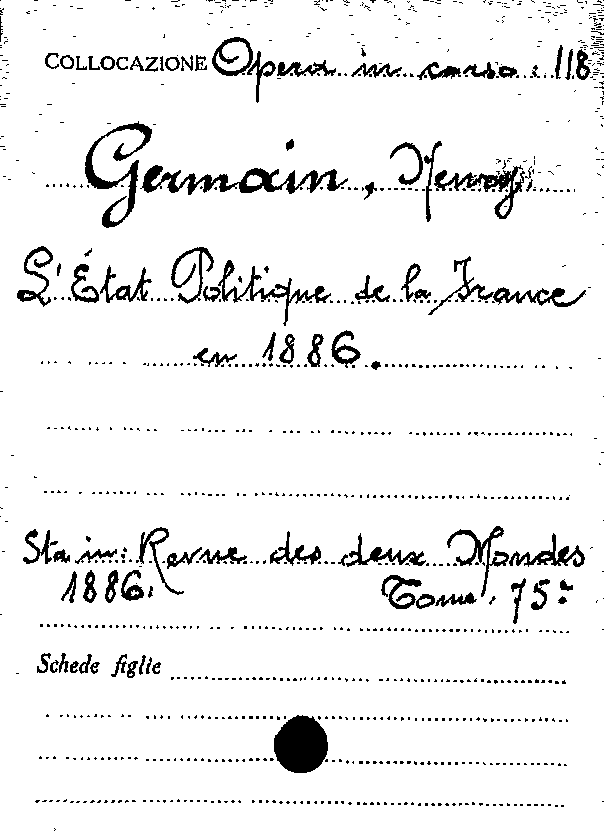 COLLOCAZIONE Opera in corso: 118
Germain, Henry
L'État Politique de la France
en 1886.
Sta in: Revue des deux Mondes
1886. Tome 75:
Schede figlie